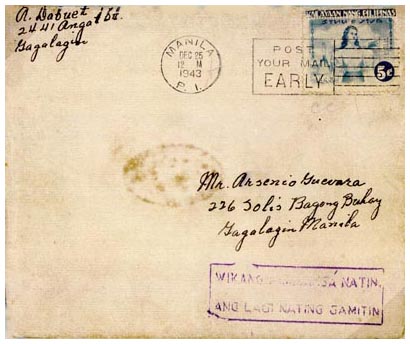 A. Dabuet
2441 Angat St.
Gagalagin
MANILA
DEC 25
12 M
1943
P. I.
POST
YOUR MAIL
EARLY
KALAYAAN NANG PILIPINAS
5c
Mr. Arsenio Guevara
226 Solis Bagong Buhay
Gagalagin Manila
WIKANG NATIN,
ANG LAGI NATING GAMITIN